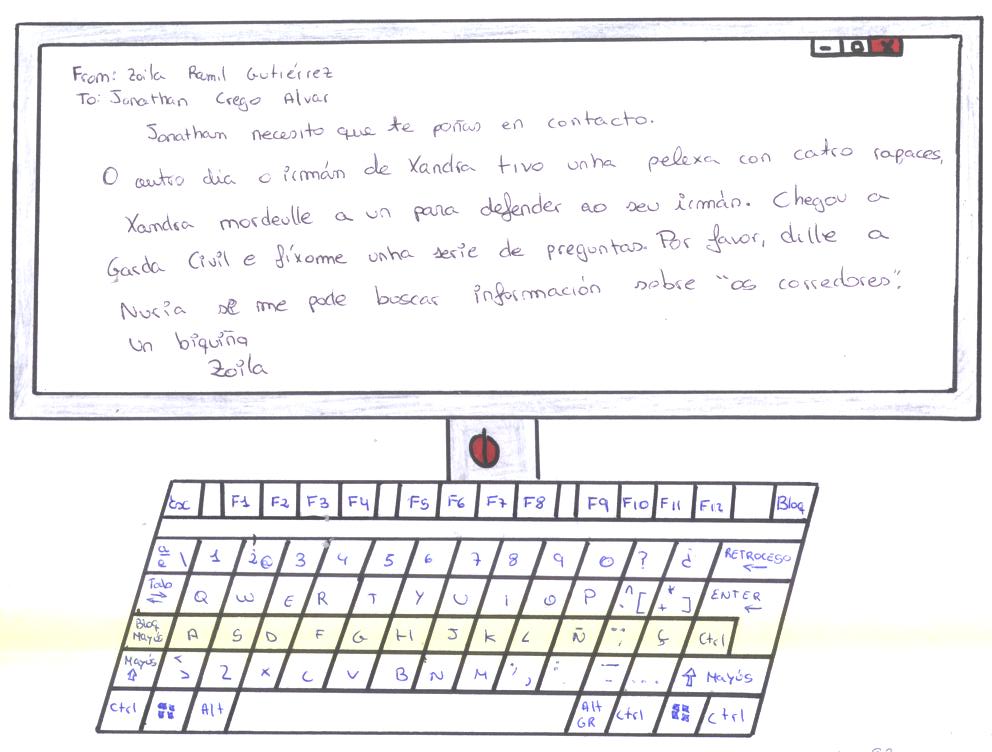 From: Zoila Ramil Gutiérrez
To: Jonathan Crego Alvar
Jonathan necesito que te poñas en contacto.
O outro dia o irmán de Xandra tivo unha pelexa con catro rapaces,
Xandra mordeulle a un para defender ao seu irmán. Chegou a
Garda Civil e fíxome unha serie de preguntas. Por favor, dille a
Nuria se me pode buscar información sobre "os corredores".
Un biquiño
Zoila
Esc F1 F2 F3 F4 F5 F6 F7 F8 F9 F10 F11 F12 Bloq
a e \ 1 2 @ 3 4 5 6 7 8 9 0 ? ¿ RETROCESO ←
Tab Q W E R T Y U I O P ^ [ * + ] ENTER ←
Bloq Mayús A S D F G H J K L Ñ Ctrl
Mayús ⇧ < > Z X C V B N M ; , : . – – ... ⇧ Mayús
Ctrl Alt Alt GR Ctrl Ctrl